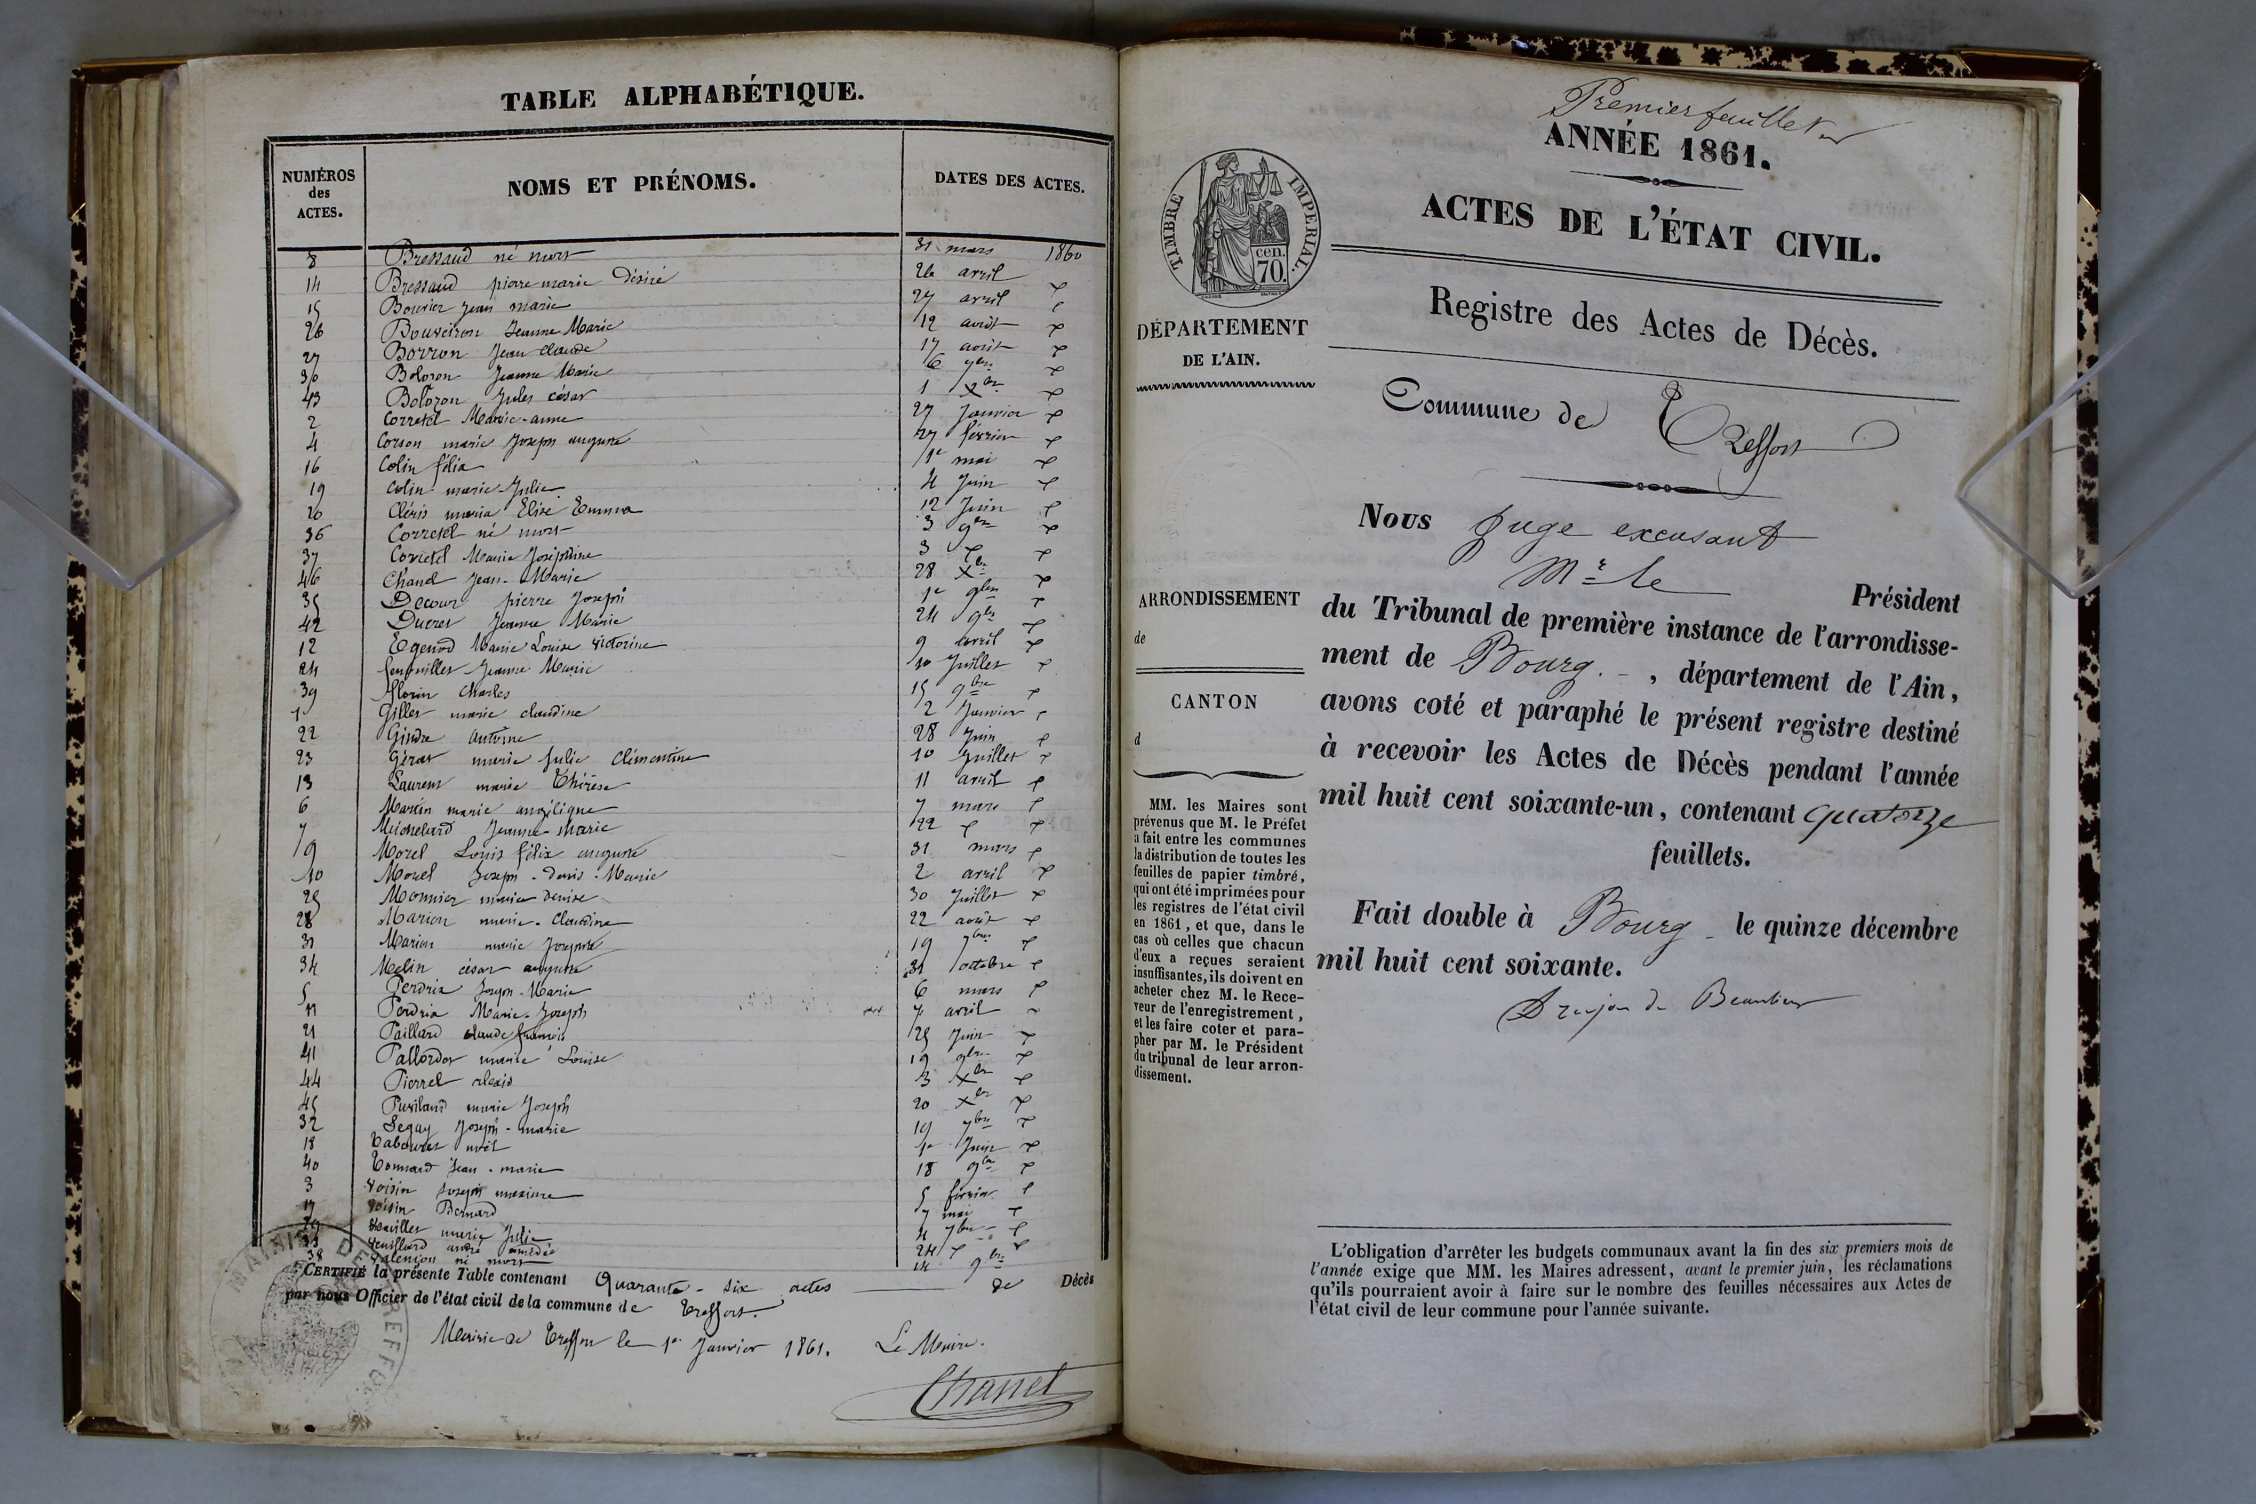 TABLE ALPHABÉTIQUE.
NUMÉROS des ACTES.
NOMS ET PRÉNOMS.
DATES DES ACTES.
8 Bressaud né mort 31 mars 1860
14 Bressaud pierre marie Désiré 26 avril
15 Bouvier Jean marie 27 avril
26 Bouveiron Jeanne Marie 12 août
27 Borron Jean claude 17 août
30 Bolozon Jeanne Marie 6 7bre
43 Bolozon Jules césar 1 Xbre
2 Corretel Marie-anne 27 Janvier
4 Corson marie Joseph auguste 27 février
16 Colin félix 1er mai
19 Colin marie Julie 4 Juin
20 Cléris maria Elise Emma 12 Juin
36 Corretel né mort 3 9bre
37 Corretel Marie Joséphine 3
46 Chanel Jean-Marie 28 Xbre
35 Decour pierre Joseph 1er 9bre
42 Ducret Jeanne Marie 24 9bre
12 Egenod Marie Louise victorine 9 avril
24 Jeanne Marie 10 Juillet
39 florin Charles 15 9bre
1 Gillet marie claudine 2 Janvier
22 Gindre antoine 28 Juin
23 Gérat marie Julie Clémentine 10 Juillet
13 Laurent marie Thérèse 11 avril
6 Martin marie angélique 7 mars
7 Michelard Jeanne-Marie 22
9 Morel Louis félix auguste 31 mars
10 Morel Joseph-denis-Marie 2 avril
25 Monnier marie denise 30 Juillet
28 Marion marie-Claudine 22 août
31 Marion marie Josephte 19 7bre
34 Melin césar auguste 31 octobre
5 Perdrix Joseph-Marie 6 mars
11 Perdrix Marie-Joseph 7 avril
21 Paillard claude françois 25 Juin
41 Pallordet marie Louise 19 9bre
44 Pierrel alexis 3 Xbre
45 Puviland marie Joseph 20 Xbre
32 Seguy Joseph-marie 19 7bre
18 Tabouret noël 1er Juin
40 Tonnard Jean-marie 18 9bre
3 Voisin Joseph maxime 5 février
17 Voisin Bernard 7 mai
29 marie Julie 4 7bre
33 Vuillard andré amédée 24
38 Valençon né mort 14 9bre
CERTIFIÉ la présente Table contenant Quarante-six actes de Décès
par nous Officier de l'état civil de la commune de Treffort.
Mairie de Treffort le 1er Janvier 1861. Le Maire.
Chanel
MAIRIE DE TREFFORT
Premier feuillet
ANNÉE 1861.
ACTES DE L'ÉTAT CIVIL.
TIMBRE IMPÉRIAL.
cen.
70.
DÉPARTEMENT
DE L'AIN.
Registre des Actes de Décès.
Commune de Treffort
Nous Juge excusant
Mr le Président
ARRONDISSEMENT
de
CANTON
d
du Tribunal de première instance de l'arrondisse-
ment de Bourg. , département de l'Ain,
avons coté et paraphé le présent registre destiné
à recevoir les Actes de Décès pendant l'année
mil huit cent soixante-un, contenant quatorze
feuillets.
Fait double à Bourg le quinze décembre
mil huit cent soixante.
MM. les Maires sont
prévenus que M. le Préfet
a fait entre les communes
la distribution de toutes les
feuilles de papier timbré,
qui ont été imprimées pour
les registres de l'état civil
en 1861, et que, dans le
cas où celles que chacun
d'eux a reçues seraient
insuffisantes, ils doivent en
acheter chez M. le Rece-
veur de l'enregistrement,
et les faire coter et para-
pher par M. le Président
du tribunal de leur arron-
dissement.
L'obligation d'arrêter les budgets communaux avant la fin des six premiers mois de
l'année exige que MM. les Maires adressent, avant le premier juin, les réclamations
qu'ils pourraient avoir à faire sur le nombre des feuilles nécessaires aux Actes de
l'état civil de leur commune pour l'année suivante.